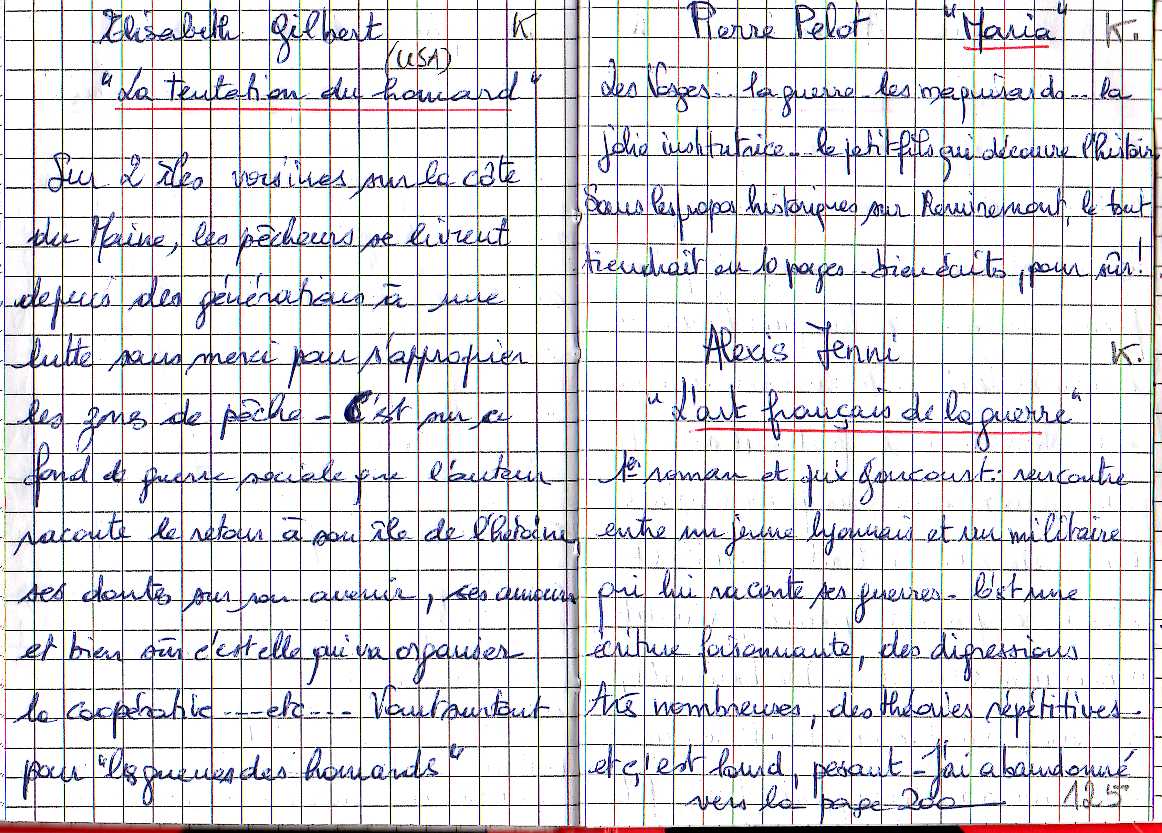 Elisabeth Gilbert K
(USA)
"La tentation du homard"
Sur 2 îles voisines sur la côte
du Maine, les pêcheurs se livrent
depuis des générations à une
lutte sans merci pour s'approprier
les zones de pêche - C'est sur ce
fond de guerre sociale que l'auteur
raconte le retour à son île de l'héroïne
ses doutes sur son avenir, ses amours
et bien sûr c'est elle qui va organiser
la coopérative ---- etc --- Vaut surtout
pour "les guerres des homards"
Pierre Pelot "Maria" K.
Les Vosges... la guerre les maquisards... la
jolie institutrice... le petit-fils qui découvre l'histoire
Sans les propos historiques sur Remiremont, le tout
tiendrait en 10 pages - bien écrits, pour sûr!
Alexis Jenni K.
"L'art français de la guerre"
1er roman et prix Goncourt: rencontre
entre un jeune lyonnais et un militaire
qui lui raconte ses guerres - C'est une
écriture foisonnante, des digressions
très nombreuses, des théories répétitives -
et ç'est lourd, pesant - J'ai abandonné
vers la page 200
125